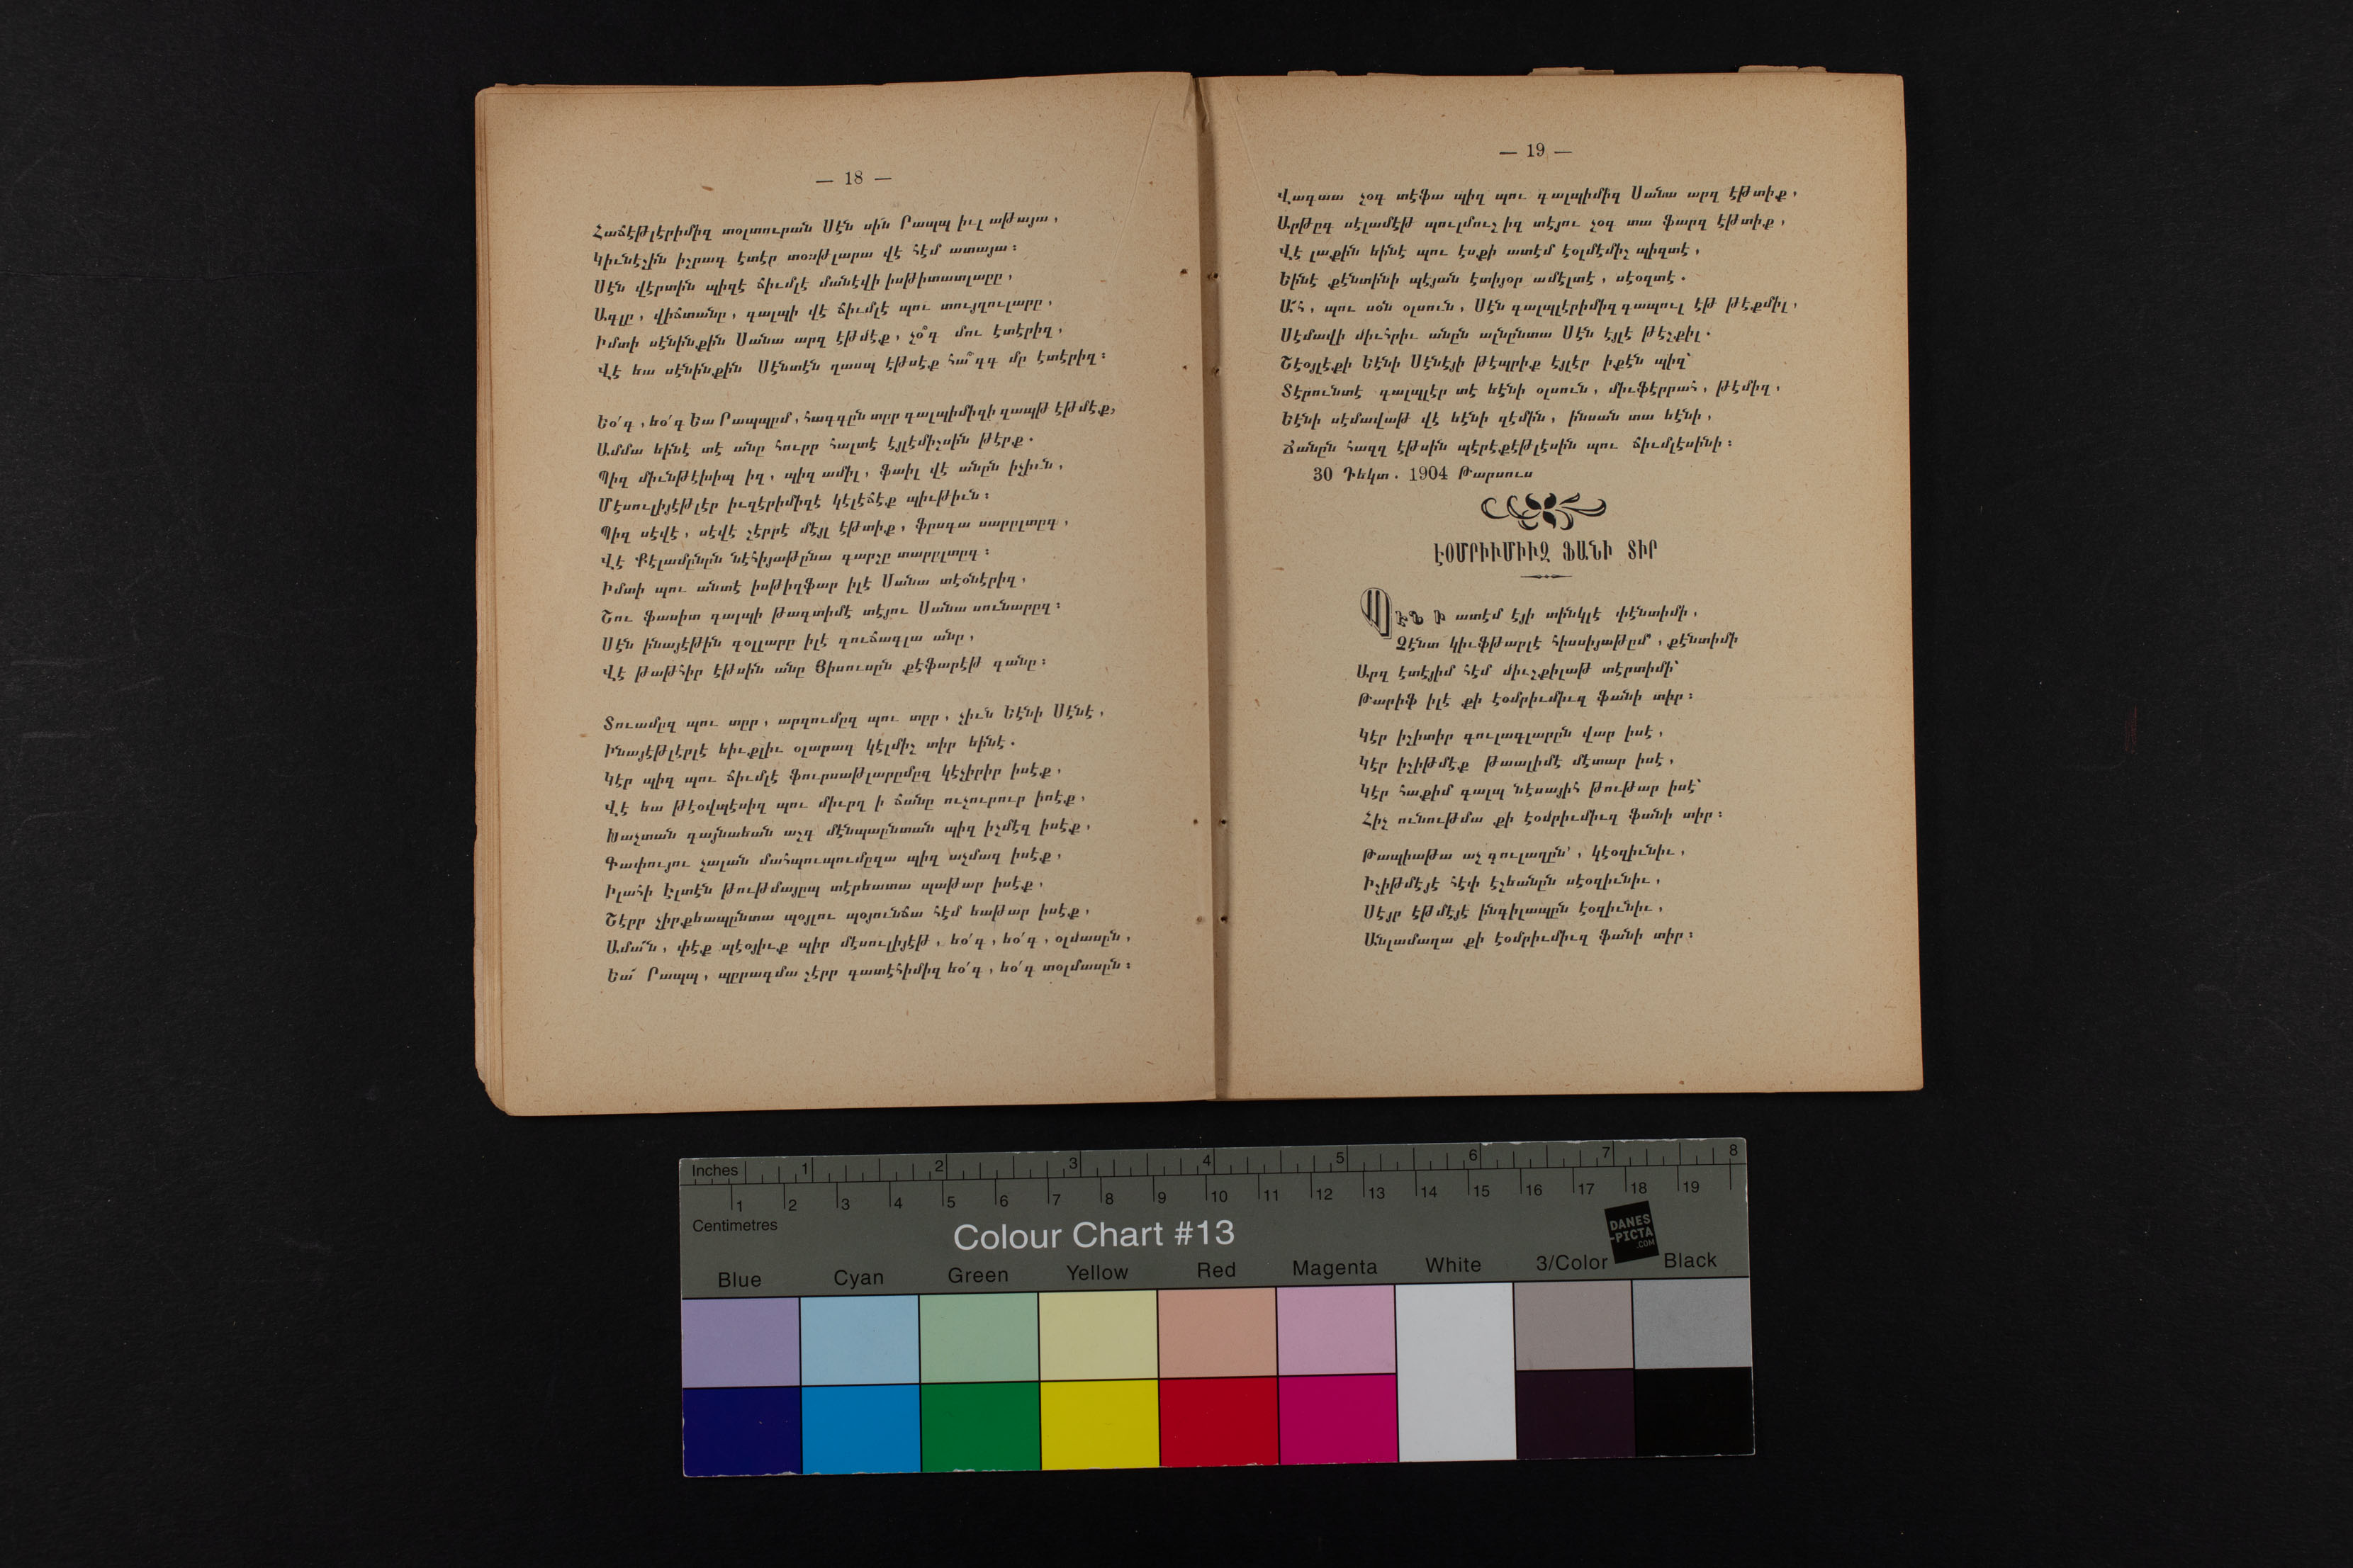 — 18 —
Հաճէթլէրիմիզ տօլտուրան Սէն սին Րապպ իւլ աթայա,
Կիւնէշին իշրագ էտէր տօսթլարա վէ հէմ ատայա։
Սէն վէրտին պիզէ ճիւմլէ մանէվի իսթիտատլարը,
Ագլը, վիճտանը, գալպի վէ ճիւմլէ պու տույղուլարը,
Իմտի սէնինքին Սանա արզ էթմէք, չօ՞գ մու էտէրիզ,
Վէ եա սէնինքին Սէնտէն ղասպ էթսէք հա՞զզ մը էտէրիզ։
Եօ՛գ, եօ՛գ Եա Րապպըմ, հազզըն տըր գալպիմիզի զապթ էթմէք,
Ամմա եինէ տէ անը հուրր հալտէ էյլէմիշսին թէրք.
Պիզ միւնթէխիպ իզ, պիզ ամիլ, ֆաիլ վէ անըն իչիւն,
Մէսուլիյէթլէր իւզէրիմիզէ կէլէճէք պիւթիւն։
Պիզ սէվէ, սէվէ շէրրէ մէյլ էթտիք, ֆըսգա սարըլտըգ,
Վէ Քէլամընըն նէհիյաթընա գարշը տարըլտըգ։
Իմտի պու անտէ իսթիղֆար իլէ Սանա տէօնէրիզ,
Շու ֆասիտ գալպի թագտիմէ տէյու Սանա սունարըզ։
Սէն ինայէթին գօլլարը իլէ գուճագլա անը,
Վէ թաթհիր էթսին անը Յիսուսըն քէֆարէթ գանը։
Տուամըզ պու տըր, արզումըզ պու տըր, չիւն Եէնի Սէնէ,
Ինայէթլէրլէ եիւքլիւ օլարագ կէլմիշ տիր եինէ.
Կէր պիզ պու ճիւմլէ ֆուրսաթլարըմըզ կէչիրիր իսէք,
Վէ եա թէօվպէսիզ պու միւրղ ի ճանը ուչուրուր իսէք,
Խաչտան գայնաեան աշգ մէնպաընտան պիզ իչմէզ իսէք,
Գափույու չալան մահպուպումըզա պիզ աչմազ իսէք,
Իլահի Էլտէն թութմայըպ տէրեատա պաթար իսէք,
Շէրր չիրքեապընտա պօյլու պօյունճա հէմ եաթար իսէք,
Ամա՜ն, փէք պէօյիւք պիր մէսուլիյէթ, եօ՛գ, եօ՛գ, օլմասըն,
Եա՜ Րապպ, պըրագմա շէրր գատէհիմիզ եօ՛գ, եօ՛գ տօլմասըն։
— 19 —
Վագաա չօգ տէֆա պիզ պու գալպիմիզ Սանա արզ էթտիք,
Արթըգ սէլամէթ պուլմուշ իզ տէյու չօգ տա ֆարզ էթտիք,
Վէ լաքին եինէ պու էսքի ատէմ էօլմէմիշ պիզտէ,
Եինէ քէնտինի պէյան էտիյօր ամէլտէ, սէօզտէ.
Ա՜հ, պու սօն օլսուն, Սէն գալպլէրիմիզ գապուլ էթ թէքմիլ,
Սէմավի միւհրիւ անըն ալնընտա Սէն էյլէ թէշքիլ.
Շէօյլէքի Եէնի Սէնէյի թէպրիք էյլէր իքէն պիզ՝
Տէրունտէ գալպլէր տէ եէնի օլսուն, միւֆէրրահ, թէմիզ,
Եէնի սէմավաթ վէ եէնի զէմին, ինսան տա եէնի,
Ճանըն հազզ էթսին պէրէքէթլէսին պու ճիւմլէսինի։
30 Դեկտ. 1904 Թարսուս
ԷՕՄՐԻՒՄԻՒԶ ՖԱՆԻ ՏԻՐ
ՊԷՆԻ ատէմ էյի տինկլէ փէնտիմի,
Զէնտ կիւֆթարլէ հիսսիյաթըմ՝, քէնտիմի
Արզ էտէյիմ հէմ միւշքիլաթ տէրտիմի՝
Թարիֆ իլէ քի էօմրիւմիւզ ֆանի տիր։
Կէր իշիտիր գուլագլարըն վար իսէ,
Կէր իշիթմէք թաալիմէ մէտար իսէ,
Կէր հաքիմ գալպ նէսայիհ թութար իսէ՝
Հիչ ունութմա քի էօմրիւմիւզ ֆանի տիր։
Թապիաթա աչ գուլաղըն՝, կէօզիւնիւ,
Իշիթմէյէ հէփ էշեանըն սէօզիւնիւ,
Սէյր էթմէյէ ինգիլապըն էօզիւնիւ,
Անլամաղա քի էօմրիւմիւզ ֆանի տիր։
Inches 1 2 3 4 5 6 7 8
1 2 3 4 5 6 7 8 9 10 11 12 13 14 15 16 17 18 19
Centimetres
Colour Chart #13
DANES
-PICTA
.COM
Blue Cyan Green Yellow Red Magenta White 3/Color Black